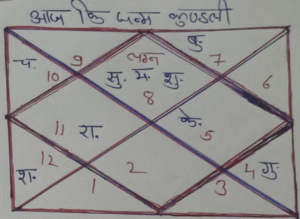 आज कि जन्म कुण्डली
च. 9 लग्न बु. 7
10 सु. म. शु. 6
8
11 रा. के. 5
12 2 4 गु.
श. 1 3